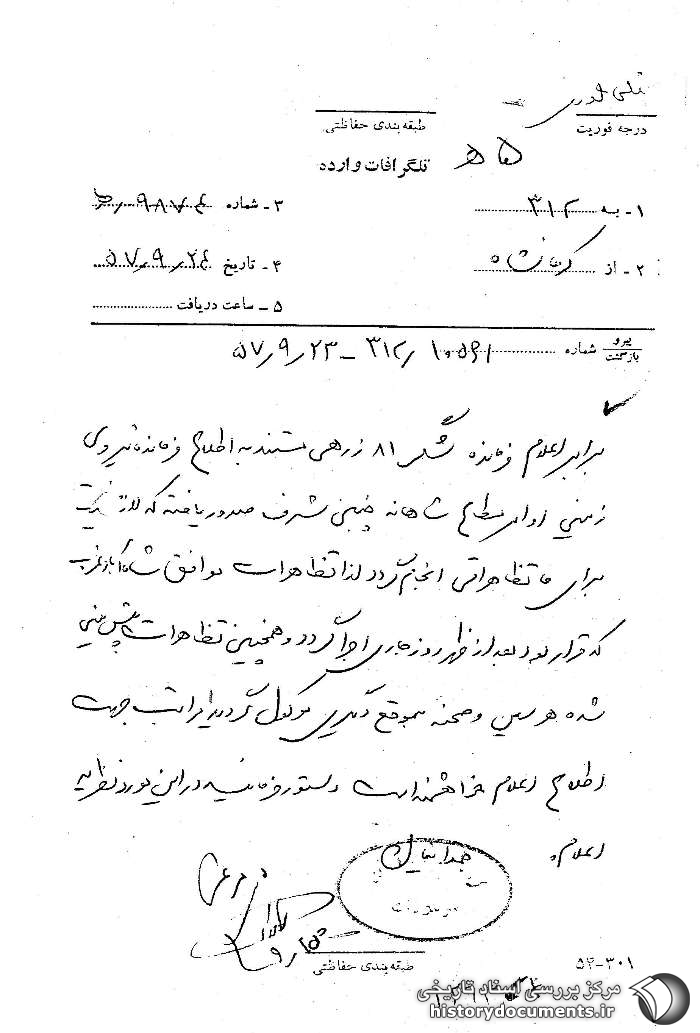 تلگرافات وارده
درجه فوریت
طبقه‌بندی حفاظتی
۱ - به ۳۱۲
۳ - شماره
۲ - از کرمانشاه
۴ - تاریخ ۵۷٫۹٫۲۴
۵ - ساعت دریافت
پیرو
بازگشت
شماره ۳۱۲٫۱۰۵۶۱ - ۵۷٫۹٫۲۳
برابر اعلام فرمانده لشگر ۸۱ زرهی مستند به اطلاع فرمانده نیروی
زمینی اوامر مطاع شاهانه چنین شرف صدور یافته که لازم نیست
برای ما تظاهراتی انجام گردد لذا تظاهرات موافق شاه‌آباد غرب
که قرار بود بعد از ظهر روز جاری اجرا گردد و همچنین تظاهرات پیش بینی
شده هرسین و صحنه بموقع دیگری موکول گردید مراتب جهت
اطلاع اعلام خواهشمند است دستور فرمائید در این مورد نظریه
اعلام
طبقه‌بندی حفاظتی
۵۲-۳۰۱
مرکز بررسی اسناد تاریخی
historydocuments.ir